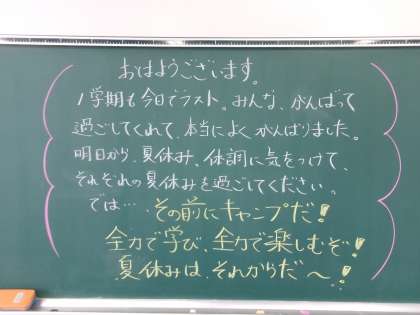 おはようございます。
1学期も今日でラスト。みんな、がんばって
過ごしてくれて、本当によくがんばりました。
明日から、夏休み。体調に気をつけて、
それぞれの夏休みを過ごしてください。
では… その前にキャンプだ!
全力で学び、全力で楽しむぞ!
夏休みは、それからだ〜!